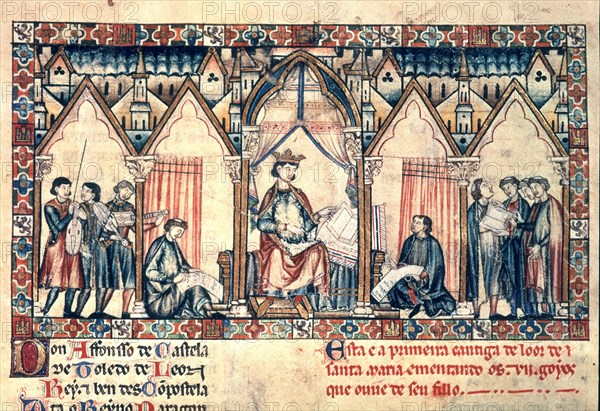 Don Affonsso de Castela
De Toledo de Leon
Rey ⁊ ben des Cõpostela
Ata o Reyno Daragon
Esta e a primeira cantiga de loor de
santa maria ementando os .vii. goyos
que ouue de seu fillo